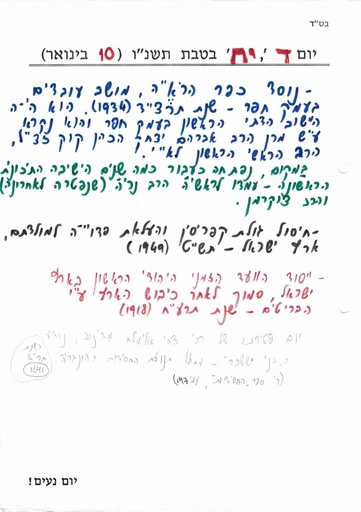 בס"ד
יום ד', י"ח בטבת תשנ"ו (10 בינואר)
- נוסד כפר הרא"ה, מושב עובדים
בעמק חפר - שנת תרצ"ד (1934). הוא ה-
הישוב הדתי הראשון בעמק חפר והוא נקרא
ע"ש מרן הרב אברהם יצחק הכהן קוק זצ"ל,
הרב הראשי הראשון לא"י.
במקום, נפתחה כעבור כמה שנים הישיבה התיכונית
הראשונה - עמדו לראשיה הרב נריה (שנפטר לאחרונה)
והרב צוקרמן.
- חיסול גולת קפריסין והעלאת למולדתם,
ארץ ישראל - תש"ט (1949)
- ייסוד הוועד הזמני היהודי הראשון בארץ
ישראל, סמוך לאחר כיבוש הארץ ע"י
הבריטים - שנת תרע"ח (1918)
יום פטירתו של ר' צבי אלימלך מדינוב, נודע
בשנת
תר"א
1841
"בני יששכר" - מחבל תנועת החסידות בהונגריה
(ר' ספר החסידות, עמ'
יום נעים!